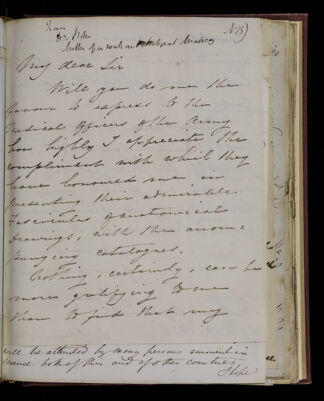 N. 15)
Author of a work on Anatomical
My dear Sir
Will you do me the
favour to express to the
Medical Officers of the Army
how highly I appreciate the
compliment with which they
have honoured me in
presenting their admirable
Fasciculus of anatomical
Drawings, with the accom=
panying catalogues.
Nothing, certainly, can be
more gratifying to me
than to find that my
will be attended by many persons eminent in
science both of this and of other countries
I hope